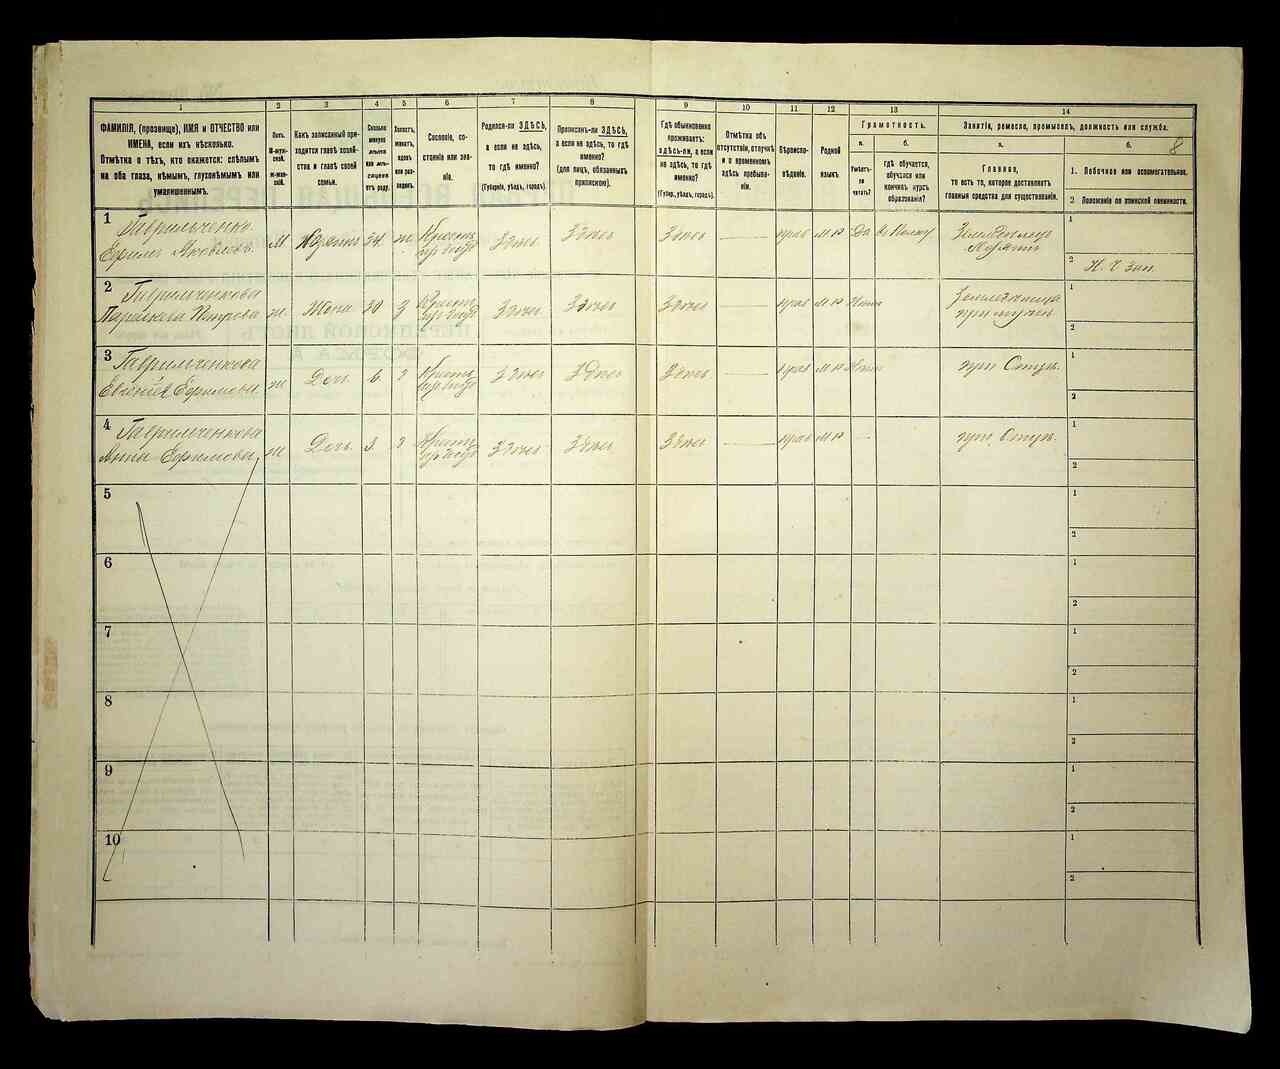 1
2
3
4
5
6
7
8
9
10
11
12
13
14
ФАМИЛІЯ, (прозвище), ИМЯ и ОТЧЕСТВО или
ИМЕНА, если ихъ нѣсколько.
Отмѣтка о тѣхъ, кто окажется: слѣпымъ
на оба глаза, нѣмымъ, глухонѣмымъ или
умалишеннымъ.
Полъ.
М-муж-
ской.
Ж-жен-
скій.
Какъ записанный при-
ходится главѣ хозяй-
ства и главѣ своей
семьи.
Сколько
минуло
лѣтъ
или мѣ-
сяцевъ
отъ роду.
Холостъ,
женатъ,
вдовъ
или раз-
веденъ.
Сословіе, со-
стояніе или зва-
ніе.
Родился-ли ЗДѢСЬ,
а если не здѣсь,
то гдѣ именно?
(Губернія, уѣздъ, городъ).
Приписанъ-ли ЗДѢСЬ,
а если не здѣсь, то гдѣ
именно?
(для лицъ, обязанныхъ
припискою).
Гдѣ обыкновенно
проживаетъ:
здѣсь-ли, а если
не здѣсь, то гдѣ
именно?
(Губер., уѣздъ, городъ).
Отмѣтка объ
отсутствіи, отлучкѣ
и о временномъ
здѣсь пребыва-
ніи.
Вѣроиспо-
вѣданіе.
Родной
языкъ
Грамотность.
а.
Умѣетъ-
ли
читать?
б.
гдѣ обучается,
обучался или
кончилъ курсъ
образованія?
Занятіе, ремесло, промыселъ, должность или служба.
а.
Главное,
то есть то, которое доставляетъ
главныя средства для существованія.
б.
8
1. Побочное или вспомогательное.
2 Положеніе по воинской повинности.
1
Гаврильченко
Ефимъ Яковлевъ
М Хозяинъ 34 ж Крестьян Здѣсь Здѣсь Здѣсь — прав Да въ Полку Земледѣлецъ
1
2 Н. Ч Зап.
2
Гаврильченкова
Параскева Петрова
ж. Жена 30 З Здѣсь Здѣсь Здѣсь — прав Нѣтъ
при мужѣ
1
2
3
Гаврильченкова
Евгенія Ефимовы
ж Дочь 6 Здѣсь Здѣсь Здѣсь — прав Нѣтъ при Отцѣ.
1
2
4
Гаврильченкова
Анны Ефимовы
ж Дочь. 3 Здѣсь Здѣсь Здѣсь — прав — при Отцѣ.
1
2
5
1
2
6
1
2
7
1
2
8
1
2
9
1
2
10
1
2